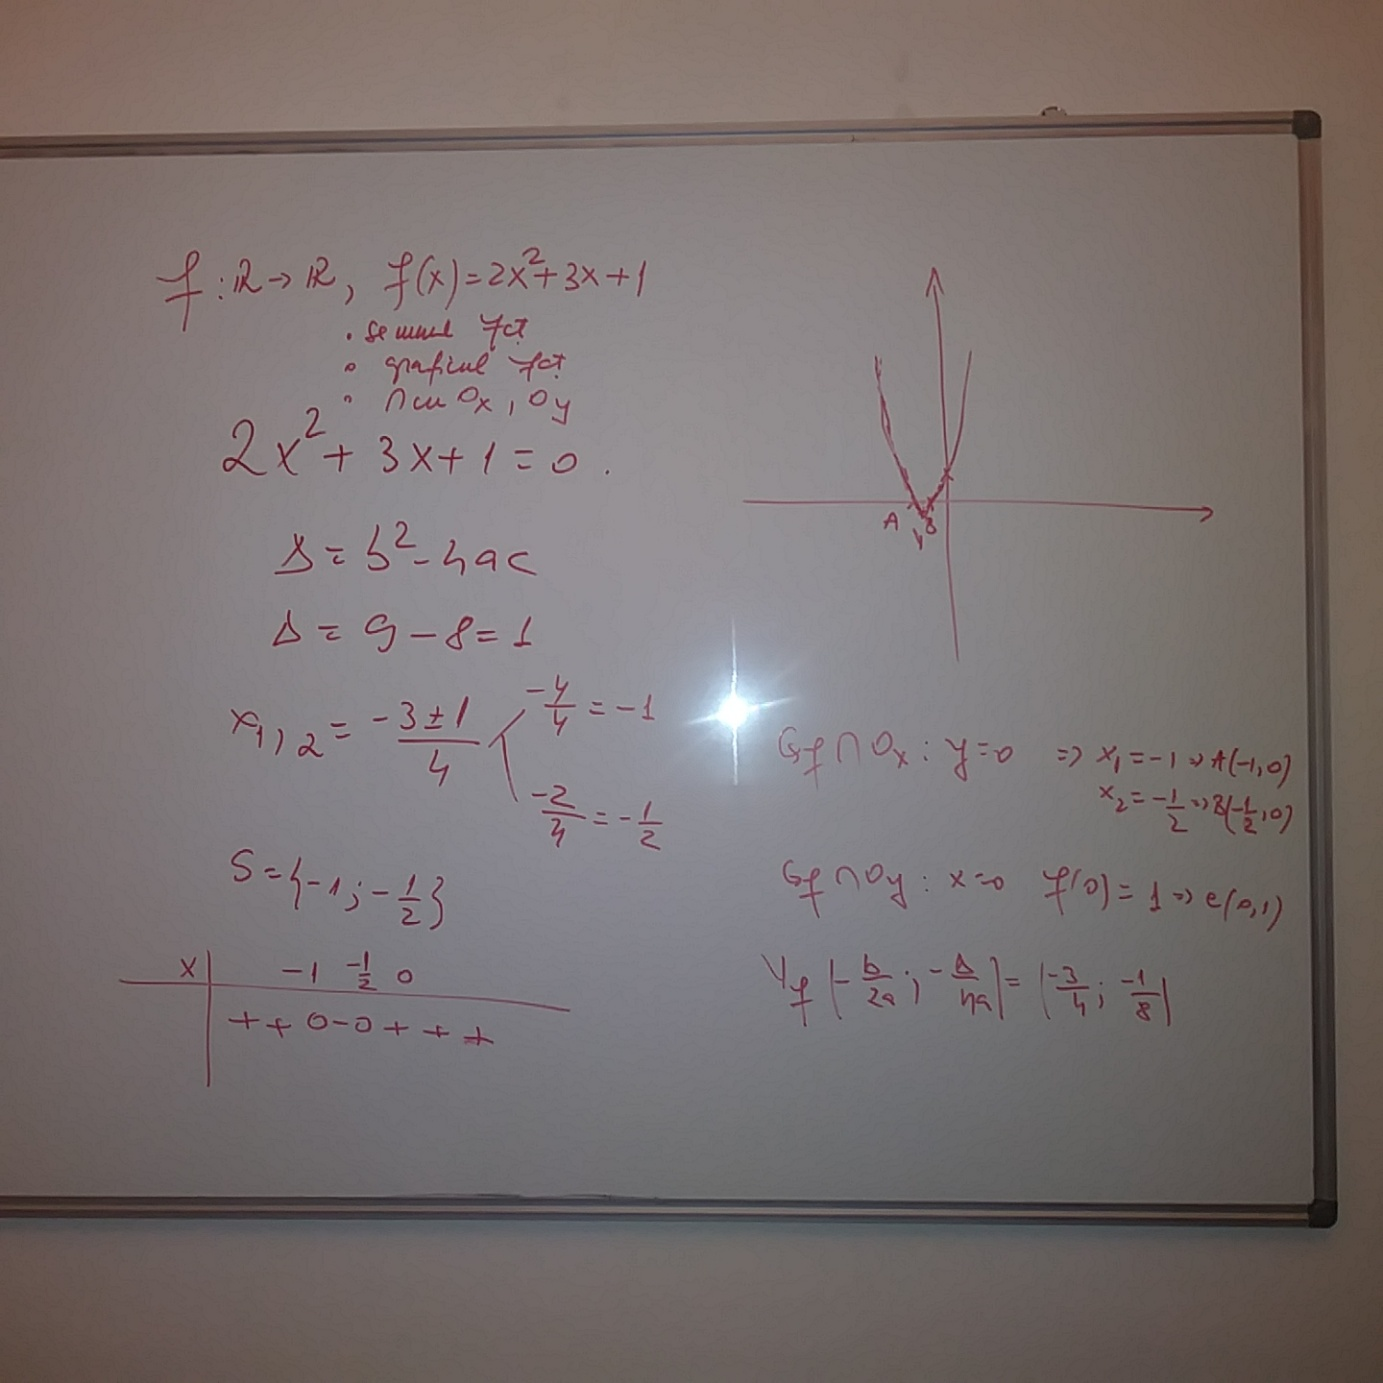 f : ℝ → ℝ, f(x) = 2x² + 3x + 1
• semnul fct
• graficul fct
• ∩ cu Ox, Oy
2x² + 3x + 1 = 0.
Δ = b² - 4ac
Δ = 9 - 8 = 1
x₁,₂ = (-3 ± 1)/4
-4/4 = -1
-2/4 = -1/2
S = {-1; -1/2}
x | -1 -1/2 0
+ + 0 - 0 + + +
A B
V
Gf ∩ Ox : y = 0 ⇒ x₁ = -1 ⇒ A(-1, 0)
x₂ = -1/2 ⇒ B(-1/2, 0)
Gf ∩ Oy : x = 0 f(0) = 1 ⇒ C(0, 1)
Vf (-b/2a ; -Δ/4a) = (-3/4 ; -1/8)